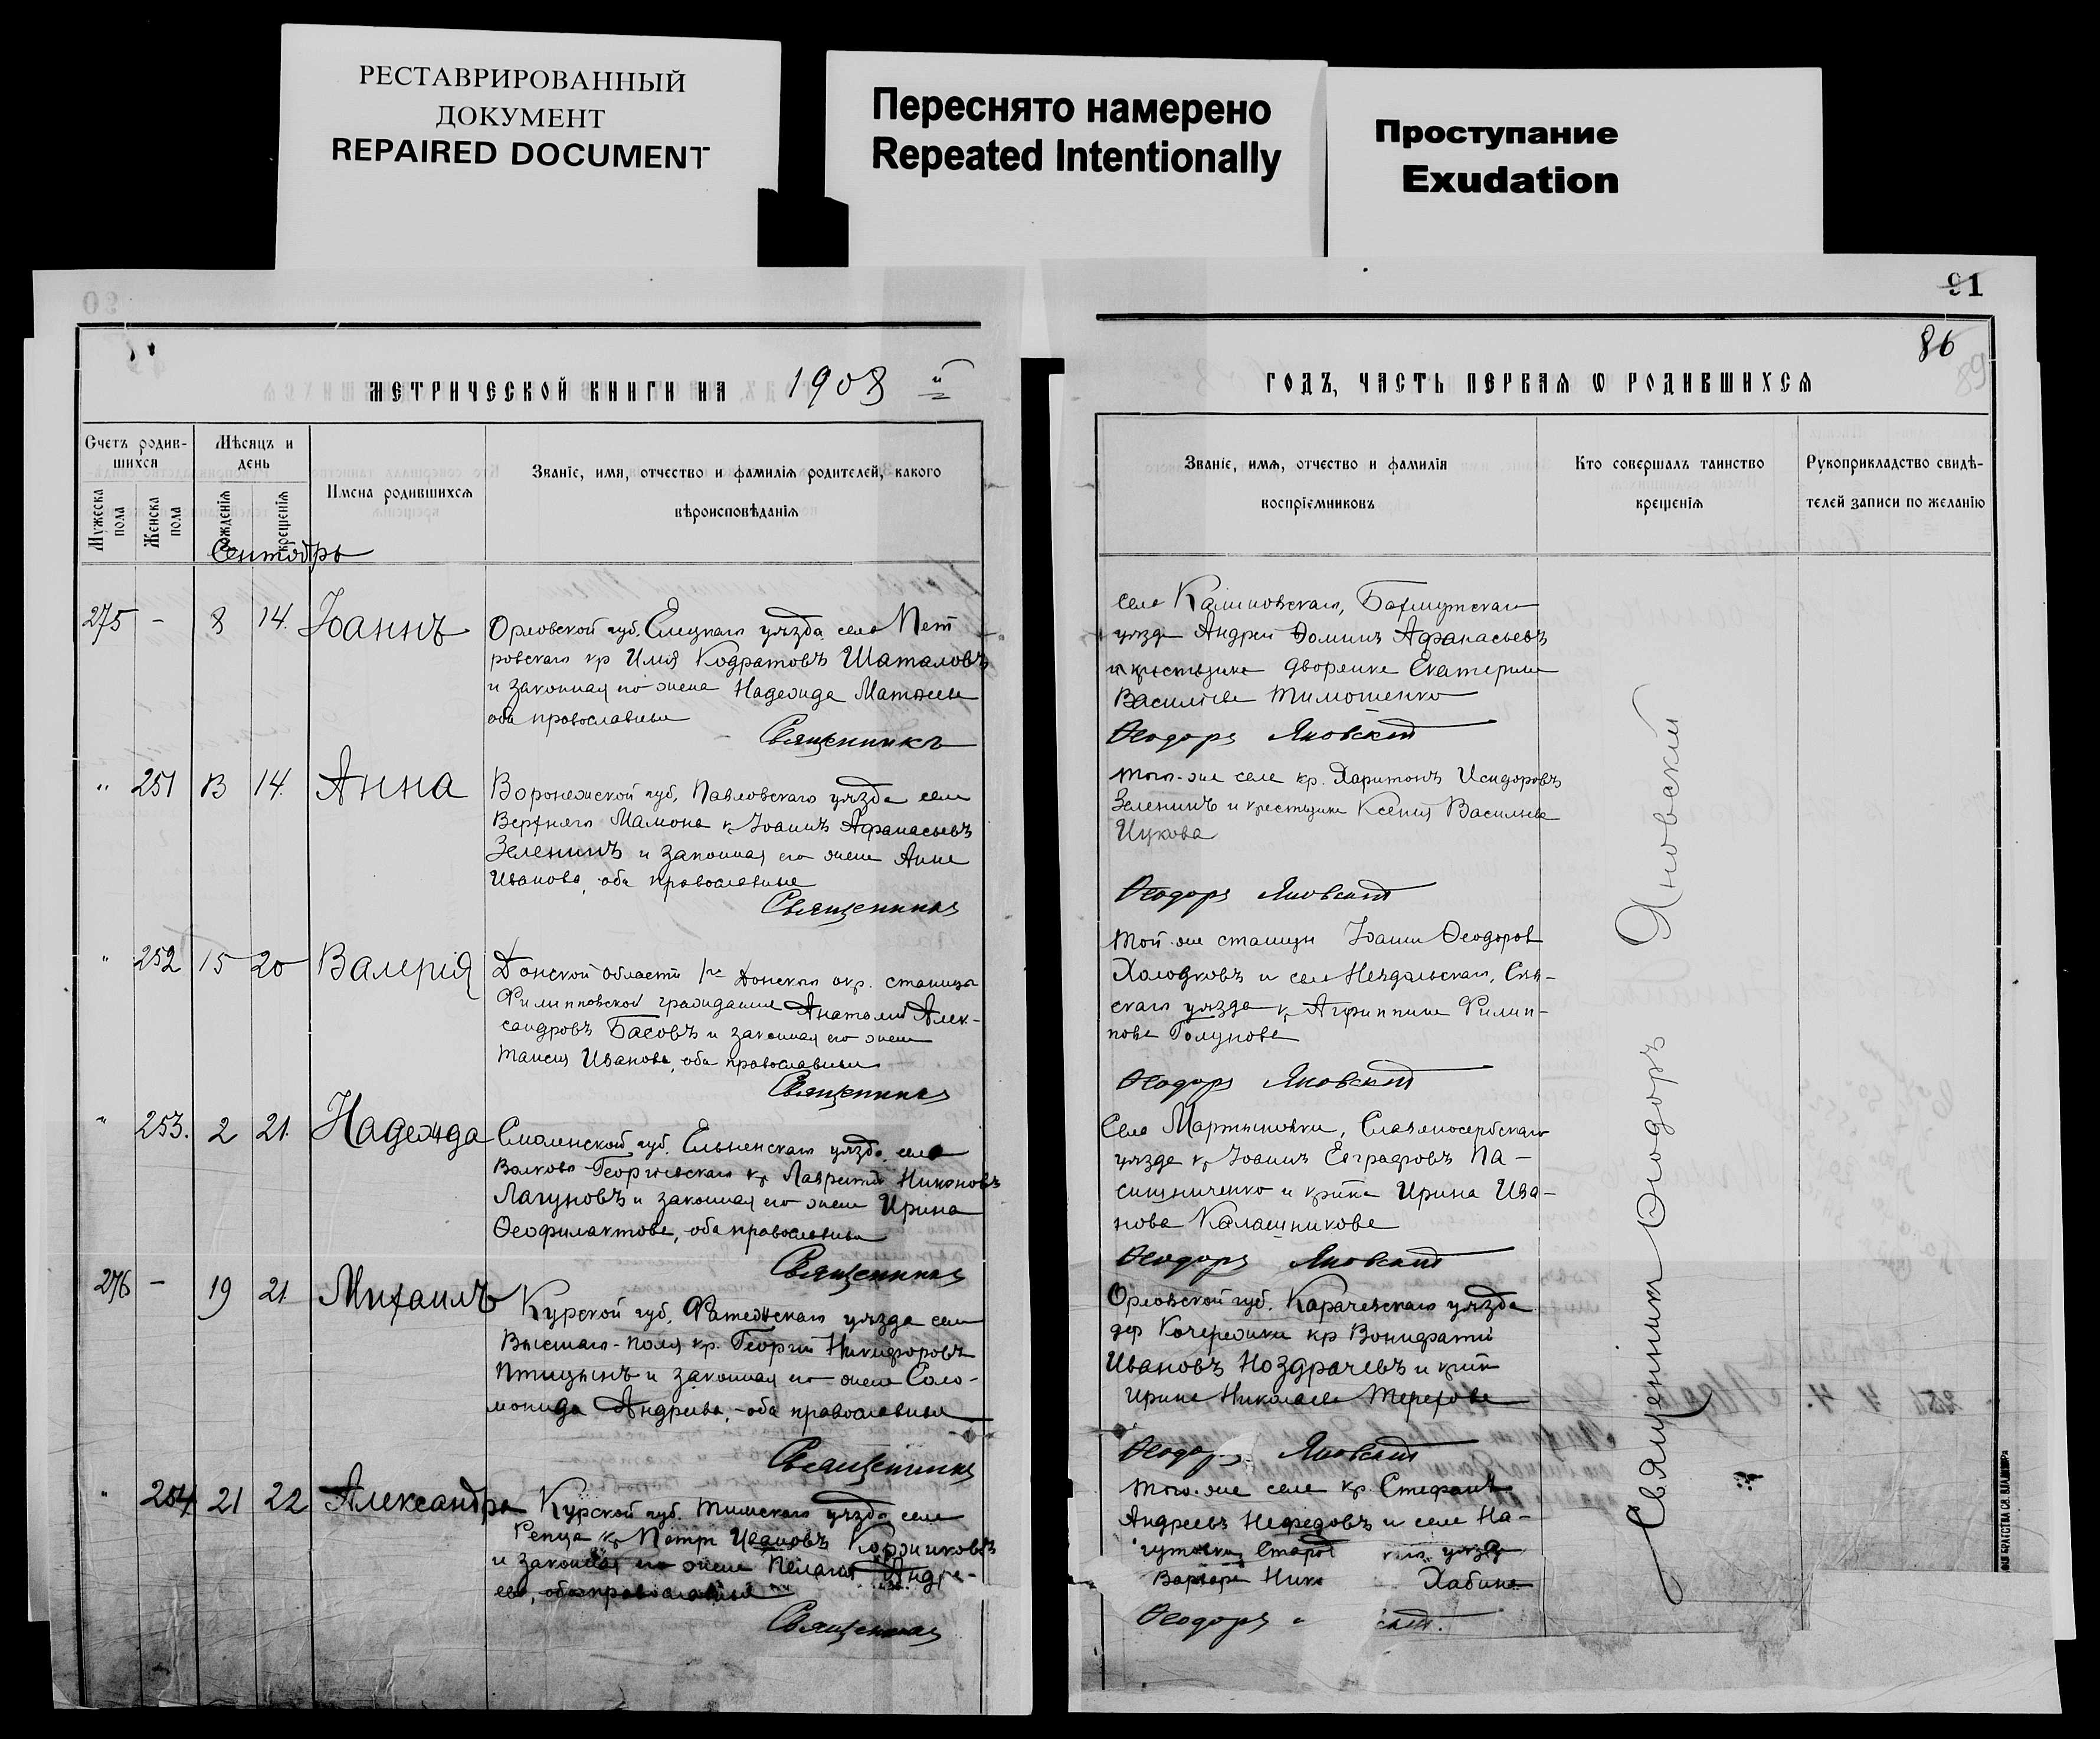 РЕСТАВРИРОВАННЫЙ
ДОКУМЕНТ
REPAIRED DOCUMENT
Переснято намерено
Repeated Intentionally
Проступание
Exudation
91
86
МЕТРИЧЕСКОЙ КНИГИ НА 1908 й
ГОДЪ, ЧАСТЬ ПЕРВАЯ Ѡ РОДИВШИХСЯ
Счетъ родив-
шихся
Мѣсяцъ и
день
Мужеска
пола
Женска
пола
рожденія
крещенія
Имена родившихся
Званіе, имя, отчество и фамилія родителей, какого
вѣроисповѣданія
Званіе, имя, отчество и фамилія
воспріемниковъ
Кто совершалъ таинство
крещенія
Рукоприкладство свидѣ-
телей записи по желанію
Сентябрь
275 - 8 14. Іоаннъ
Орловской губ. Елецкаго уѣзда села Пет
ровскаго кр Илія Кодратовъ Шаталовъ
и законная его жена Надежда Матѳеева
оба православные
Священникъ
села Калиновскаго, Бахмутскаго
уѣзда Андрей Ѳоминъ Афанасьевъ
и дворянка Екатерина
Васильева Тимошенко
Ѳеодоръ Яновскій
" 251 13 14. Анна
Воронежской губ, Павловскаго уѣзда села
Верхняго Мамона кр Іоаннъ Афанасьевъ
Зеленинъ и законная его жена Анна
Иванова, оба православные
Священникъ
того-же села кр. Харитонъ Исидоровъ
Зеленинъ и крестьянка Ксенія Васильева
Цукова
Ѳеодоръ Яновскій
" 252 15 20 Валерія
Донской области 1го Донскаго окр. станицы
Филипповской гражданинъ Анатолій Алек-
сандровъ Басовъ и законная его жена
Таисія Иванова, оба православные
Священникъ
той-же станицы Іоаннъ Ѳеодоров
Холодковъ и села
скаго уѣзда кр Агриппина Филип-
пова Голунова
Ѳеодоръ Яновскій
" 253. 2 21. Надежда
Смоленской губ. Ельненскаго уѣзда села
Волково-Георгіевскаго кр Лаврентій Никоновъ
Лагуновъ и законная его жена Ирина
Ѳеофилактова, оба православные
Священникъ
Села Мартыновки, Славяносербскаго
уѣзда кр Іоаннъ Евграфовъ Па-
сишниченко и кр-нка Ирина Ива-
нова Калашникова
Ѳеодоръ Яновскій
276 - 19 21 Михаилъ
Курской губ. Фатежскаго уѣзда села
Высшаго-Поля кр. Георгій Никифоровъ
Птицынъ и законная его жена Соло-
монида Андреева, - оба православные
Священникъ
Орловской губ. Карачевскаго уѣзда
дер Кочережки кр Вонифатій
Ивановъ Ноздрачевъ и кр-нка
Ирина Николаева Терехова
Ѳеодоръ Яновскій
" 254 21 22 Александра
Курской губ. Тимскаго уѣзда села
Репца кр Петръ Ивановъ
и законная его жена Пелагія Андре-
ева, оба православные
Священникъ
того-же села кр. Стефанъ
Андреевъ Нефедовъ и села На-
уѣзда
Варвара Хабина
Ѳеодоръ
Священникъ Ѳеодоръ Яновскій